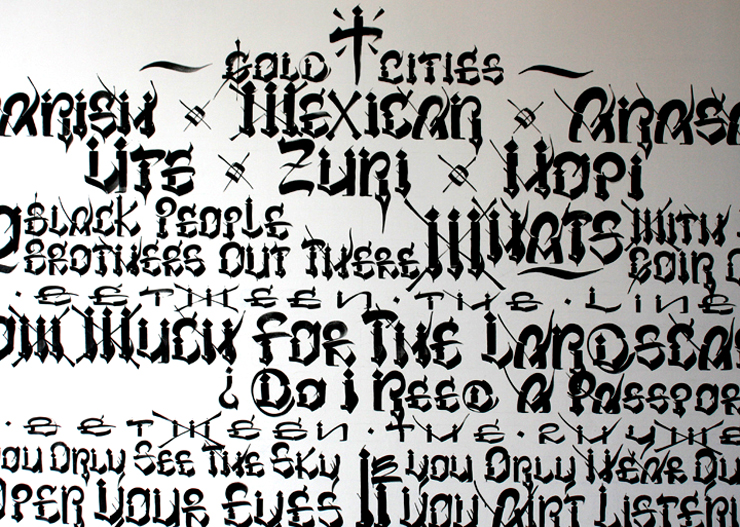 GOLD † CITIES
ANISH MEXICAN ANASA
UTE ZUNI HOPI
BLACK PEOPLE WHATS WITH
BROTHERS OUT THERE GOIN O
BETWEEN · THE · LINE
OW MUCH FOR THE LANDSCA
¿ DO I NEED A PASSPOR
· BETWEEN · THE · RHYME
YOU ONLY SEE THE SKY IF YOU ONLY HEAR OU
OPEN YOUR EYES YOU AINT LISTEN